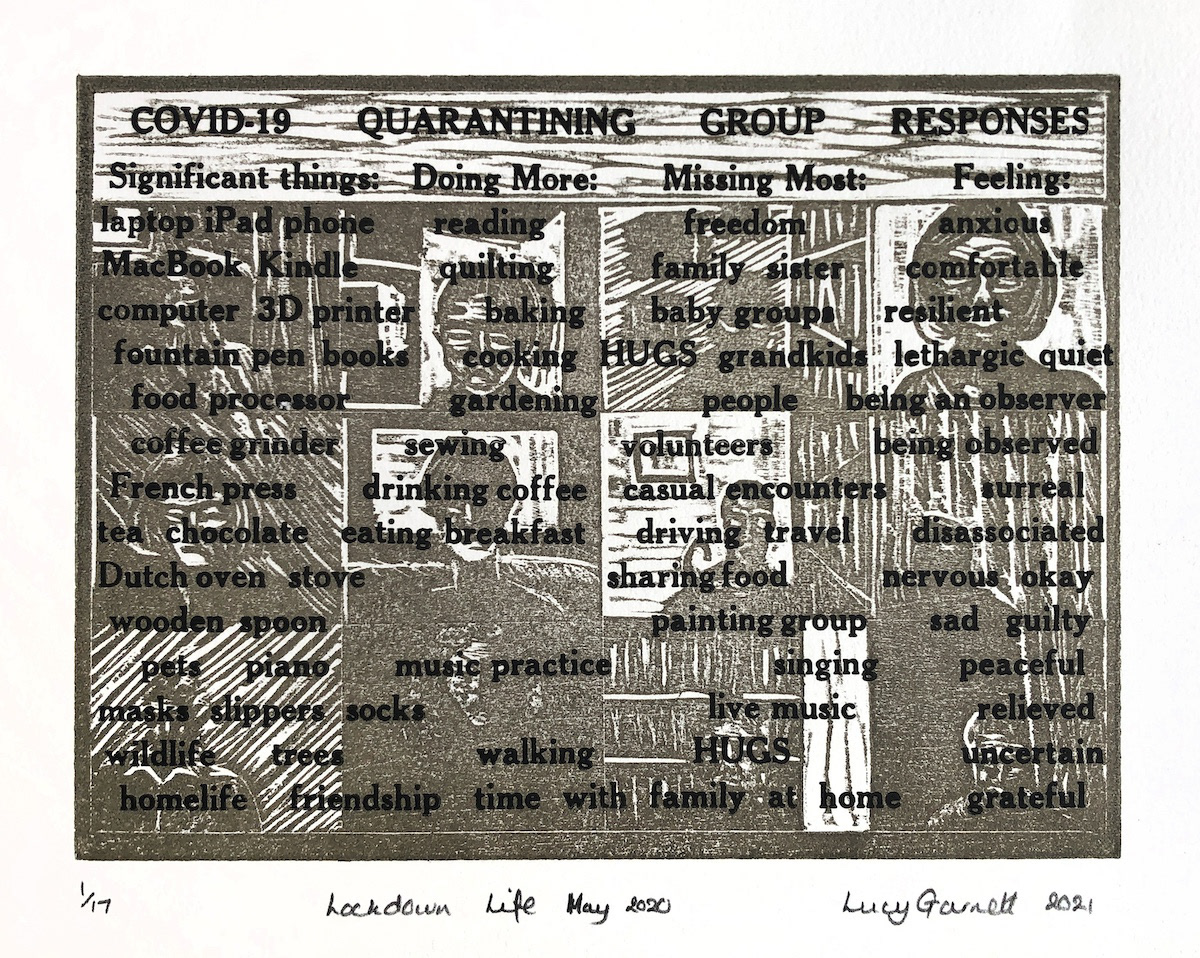 COVID-19 QUARANTINING GROUP RESPONSES
Significant things: Doing More: Missing Most: Feeling:
laptop iPad phone reading freedom anxious
MacBook Kindle quilting family sister comfortable
computer 3D printer baking baby groups resilient
fountain pen books cooking HUGS grandkids lethargic quiet
food processor gardening people being an observer
coffee grinder sewing volunteers being observed
French press drinking coffee casual encounters surreal
tea chocolate eating breakfast driving travel disassociated
Dutch oven stove sharing food nervous okay
wooden spoon painting group sad guilty
pets piano music practice singing peaceful
masks slippers socks live music relieved
wildlife trees walking HUGS uncertain
homelife friendship time with family at home grateful
1/17 Lockdown Life May 2020 Lucy Garnett 2021